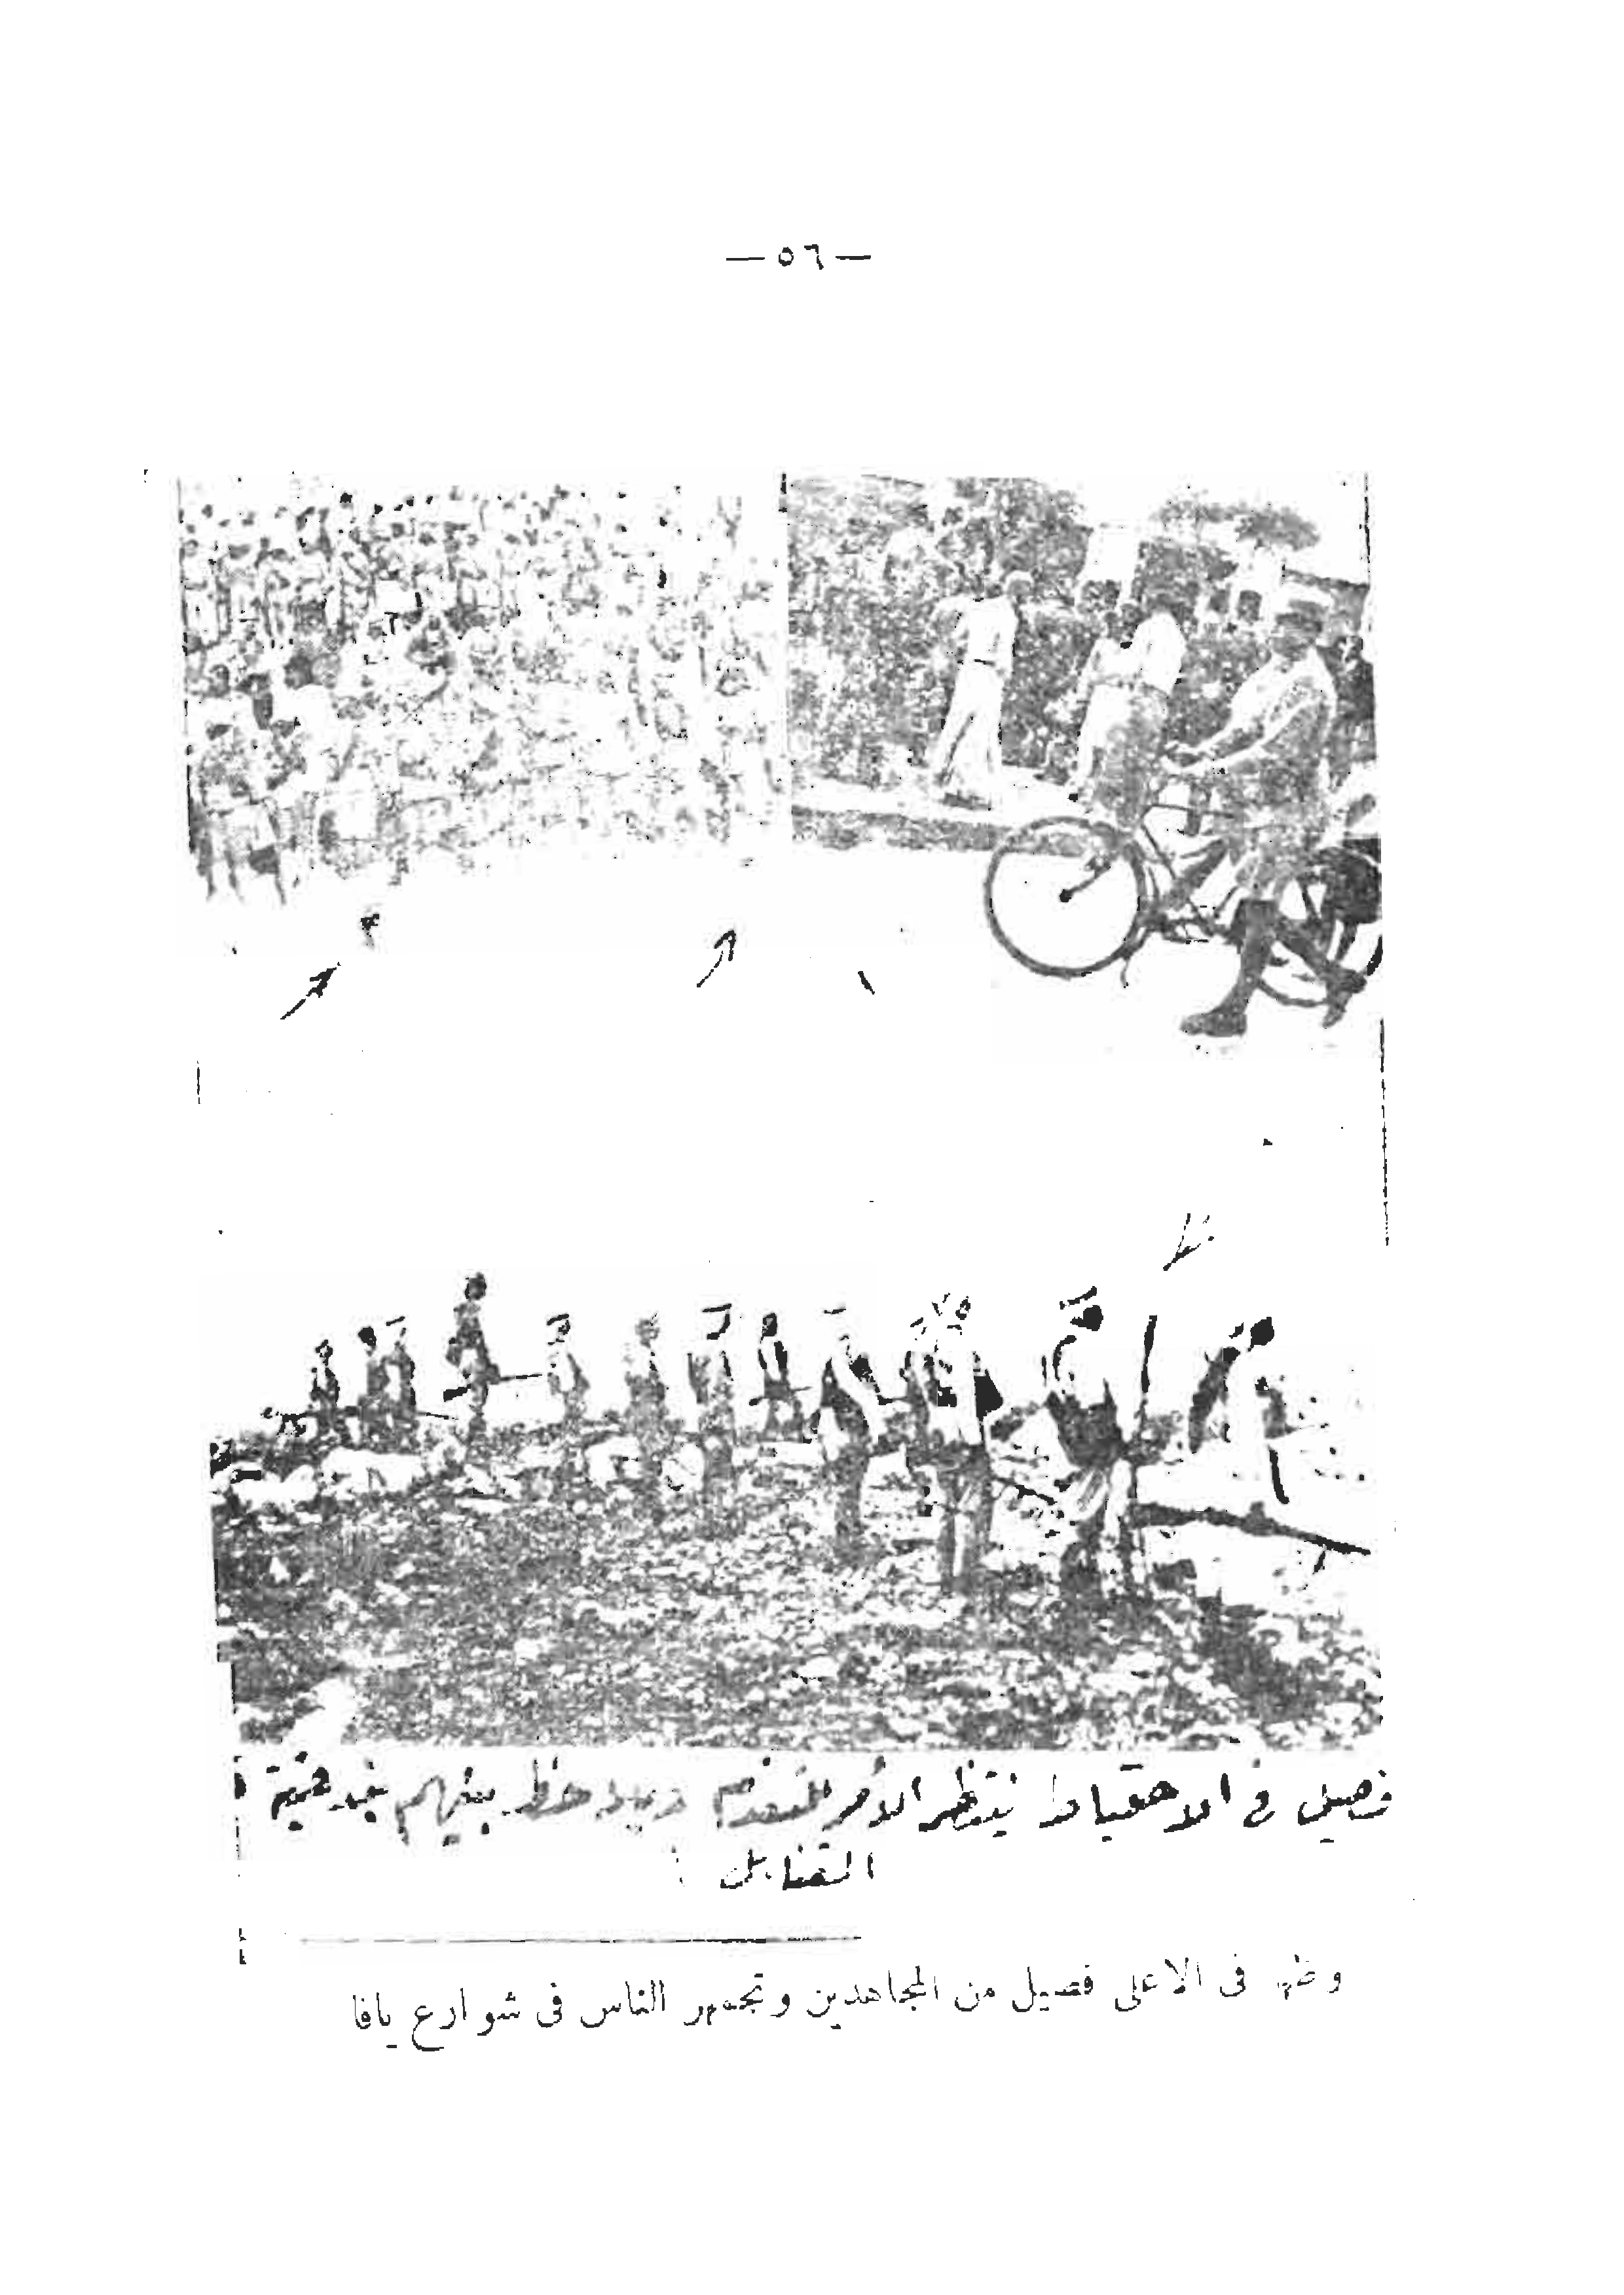 — ٥٦ —
فصيل في الاحتياط ينتظر الأمر للتقدم ويلاحظ بينهم
القنابل
وظهر فى الاعلى فصيل من المجاهدين وتجمهر الناس فى شوارع يافا